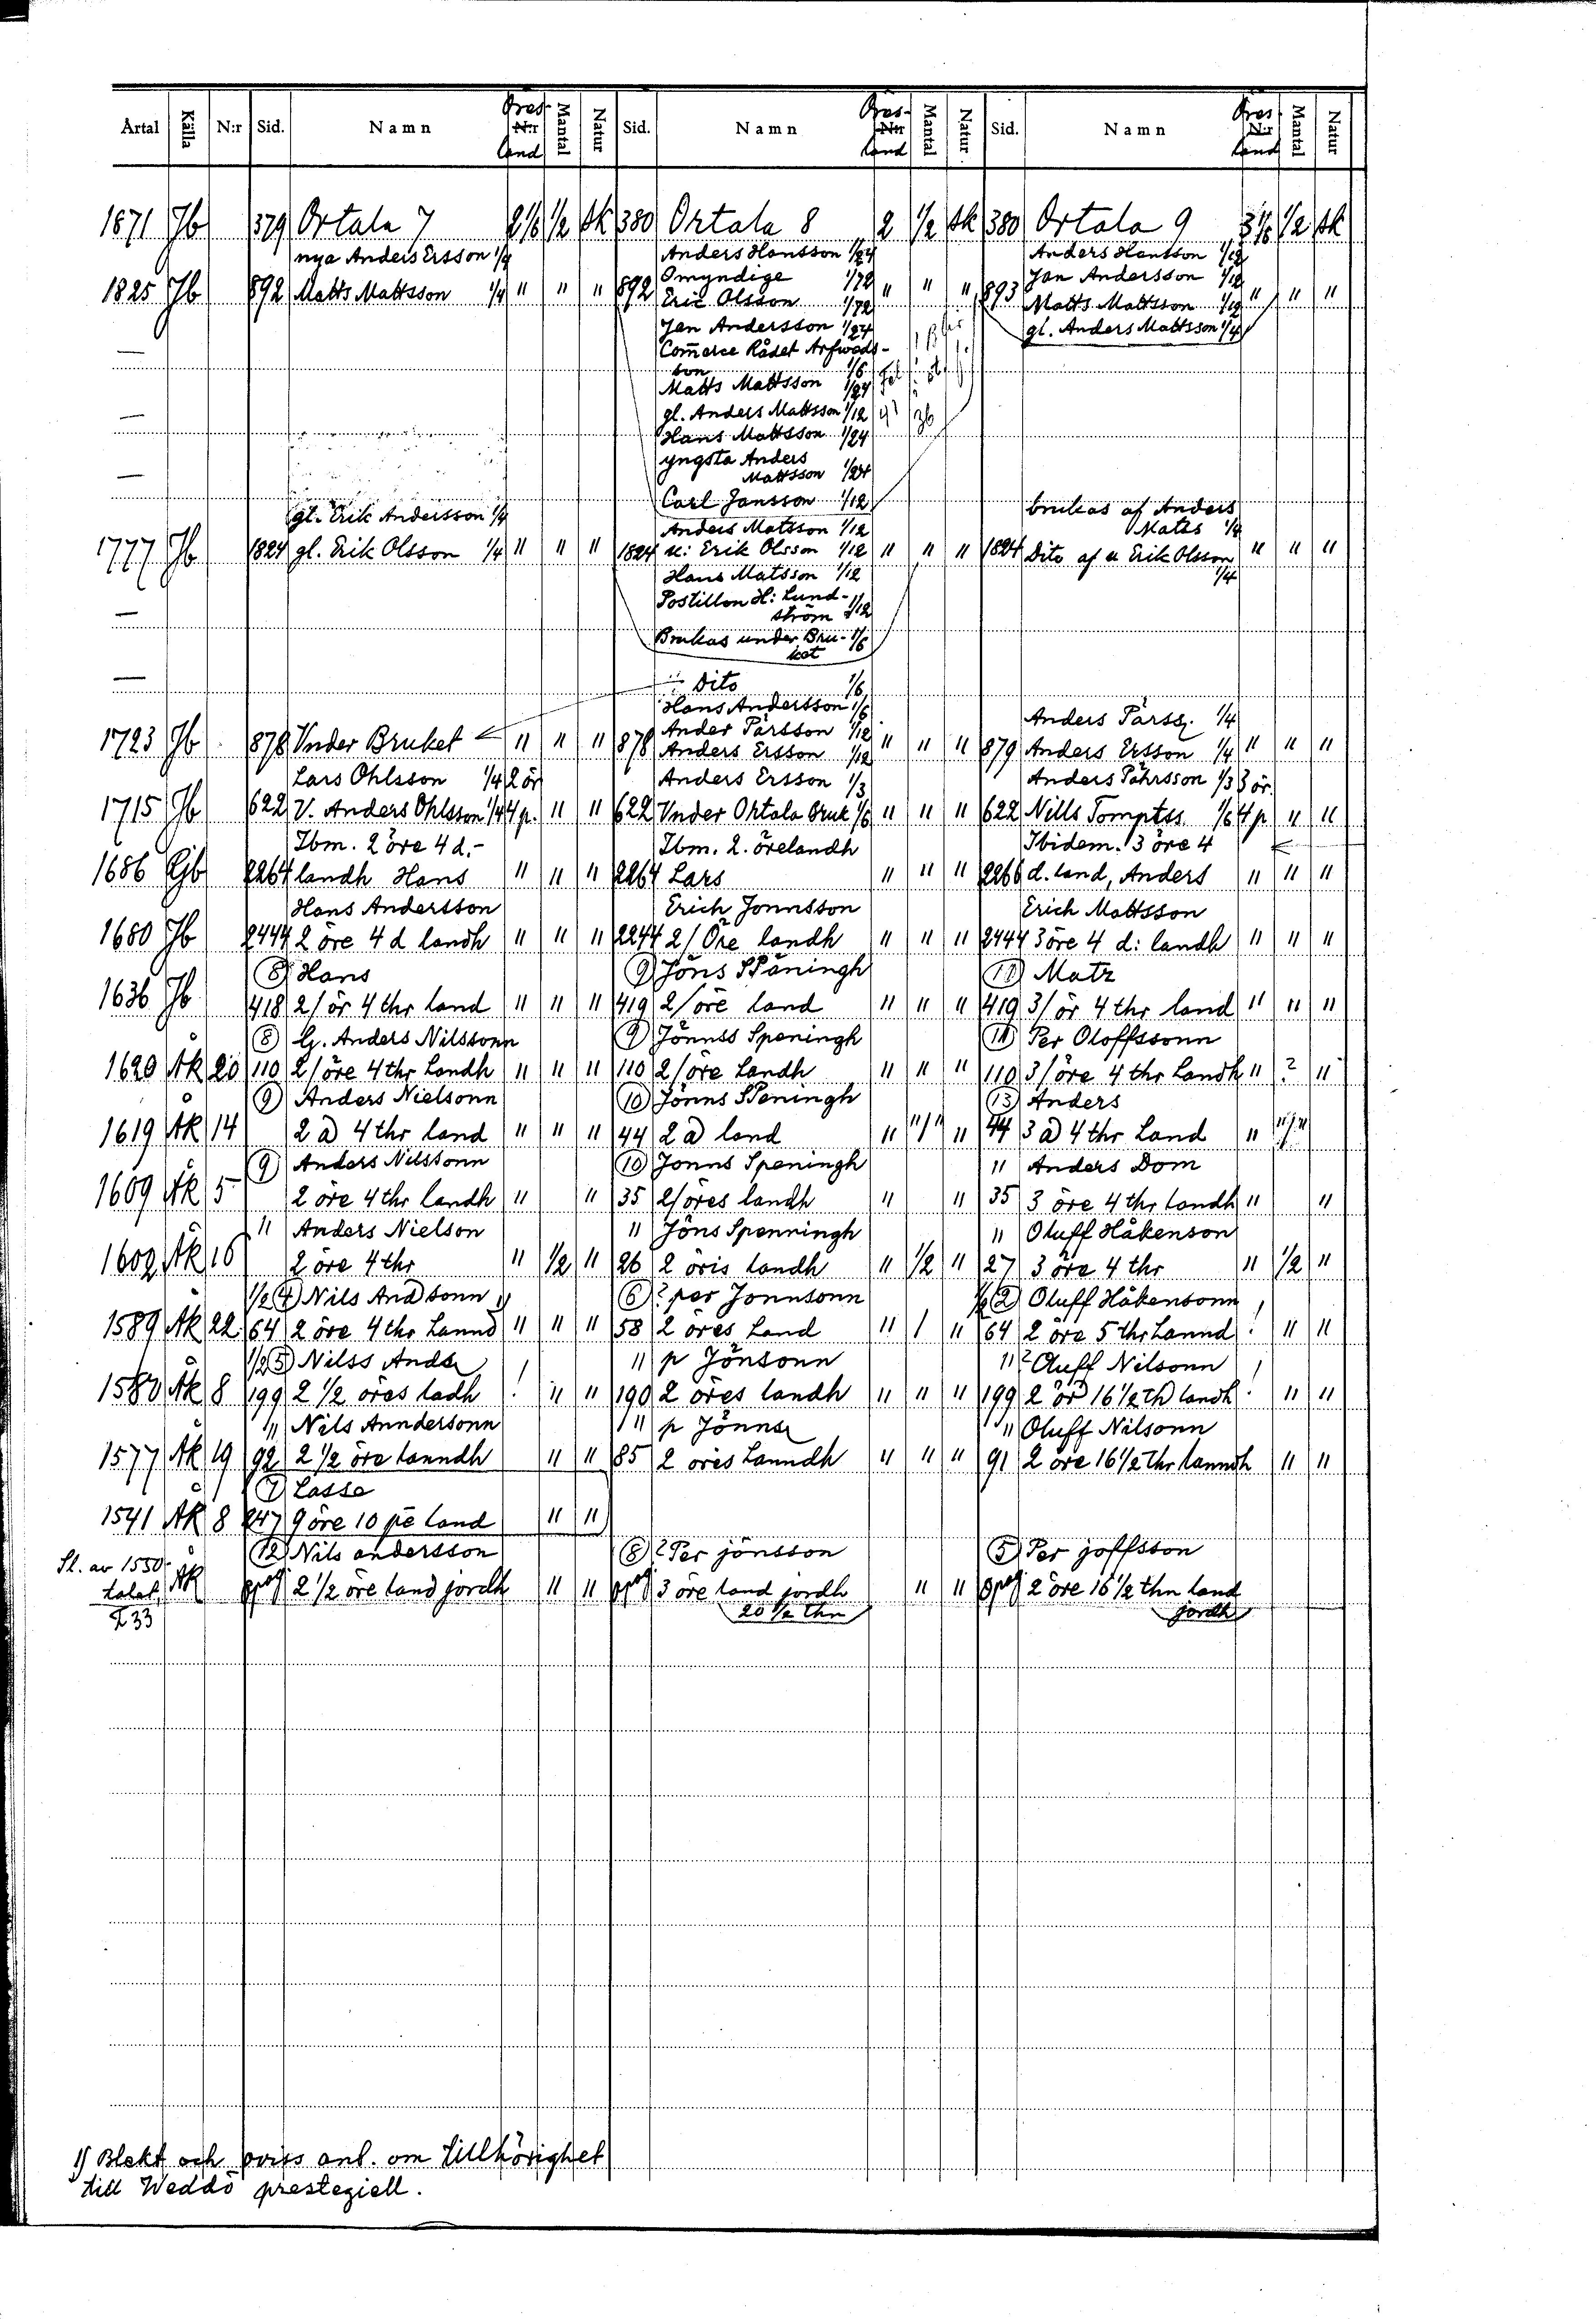 Årtal Källa N:r Sid. Namn Öres- N:r land Mantal Natur Sid. Namn Öres- N:r land Mantal Natur Sid. Namn Öres- N:r land Mantal Natur
1871 Jb 379 Ortala 7 2 1/6 1/2 sk 380 Ortala 8 2 1/2 sk 380 Ortala 9 3 1/6 1/2 sk
nya Anders Ersson 1/4 Anders Hansson 1/24 Anders Hansson 1/12
Omyndige 1/72 Jan Andersson 1/12
1825 Jb 892 Matts Mattsson 1/4 " " " 892 Eric Olsson 1/72 " " " 893 Matts Mattsson 1/12 " " "
Jan Andersson 1/24 gl. Anders Mattsson 1/4
— Com̄erce Rådet Arfweds-
son 1/6
Matts Mattsson 1/24
— gl. Anders Mattsson 1/12
Hans Mattsson 1/24
yngsta Anders
— Mattsson 1/24
Carl Jansson 1/12 brukas af Anders
gl. Erik Andersson 1/4 Anders Matsson 1/12 Mates 1/4
1777 Jb 1824 gl. Erik Olsson 1/4 " " " 1824 u: Erik Olsson 1/12 " " " 1824 Dito af u Erik Olsson " " "
Hans Matsson 1/12 1/4
Postillon H: Lund-
— ström 1/12
Brukas under Bru- 1/6
ket
— Dito 1/6
Hans Andersson 1/6 Anders Pärss. 1/4
Ander Pärsson 1/12
1723 Jb 878 Vnder Bruket " " " 878 Anders Ersson 1/12 " " " 879 Anders Ersson 1/4 " " "
Lars Ohlsson 1/4 2 ör Anders Ersson 1/3 Anders Pährsson 1/3 3 ör.
1715 Jb 622 V. Anders Ohlsson 1/4 4 p. " " 622 Vnder Ortala Bruk 1/6 " " " 622 Nills Tomptss. 1/6 4 p " "
Ibm. 2 öre 4 d.- Ibm. 2. örelandh Ibidem. 3 öre 4
1686 Gjb 2264 landh Hans " " " 2264 Lars " " " 2266 d. land, Anders " " "
Hans Andersson Erich Jonnsson Erich Mattsson
1680 Jb 2444 2 öre 4 d landh " " " 2244 2/ Öre landh " " " 2444 3 öre 4 d: landh " " "
8 Hans 9 Jöns Späningh 11 Matz
1636 Jb 418 2/ ör 4 thr land " " " 419 2/ öre land " " " 419 3/ ör 4 thr land " " "
8 G. Anders Nilssonn 9 Jönnss Speningh 11 Per Oloffssonn
1620 Åk 20 110 2/ öre 4 thr Landh " " " 110 2/ öre Landh " " " 110 3/ öre 4 thr Landh " ? "
9 Anders Nielsonn 10 Jönns Speningh 13 Anders
1619 Åk 14 2 ð 4 thr land " " " 44 2 ð land " "/" " 44 3 ð 4 thr Land "
9 Anders Nilssonn 10 Jonns Speningh " Anders Dom
1609 Åk 5 2 öre 4 thr landh " " 35 2/ öres landh " " 35 3 öre 4 thr landh " "
" Anders Nielson " Jöns Spenningh " Oluff Håkenson
1602 Åk 16 2 öre 4 thr " 1/2 " 26 2 öris landh " 1/2 " 27 3 öre 4 thr " 1/2 "
1/2 4 Nils Andsonn 1) 6 ? per Jonnsonn 1/2 2 Oluff Håkensonn
1589 Åk 22 64 2 öre 4 thr Lannd " " " 58 2 öres Land " / " 64 2 öre 5 thr Lannd ! " "
1/2 5 Nilss Ands " p Jönsonn " ? Oluff Nilsonn
1580 Åk 8 199 2 1/2 öres ladh ! " " 190 2 öres landh " " " 199 2 ör 16 1/2 th landh ! " "
" Nils Anndersonn " p Jönns " Oluff Nilsonn
1577 Åk 19 92 2 1/2 öre lanndh " " 85 2 öres Lanndh " " " 91 2 öre 16 1/2 thr lanndh " "
7 Lasse
1541 Åk 8 247 9 öre 10 pe land " "
Sl. av 1550- 12 Nils andersson 8 ? Per jönsson 5 Per joffsson
talet Åk opag 2 1/2 öre land jordh " " opag 3 öre land jordh " " opag 2 öre 16 1/2 thn land
Z 33 20 1/2 thn jordh
1) Blekt och oviss ant. om tillhörighet
till Weddö prestegiell.